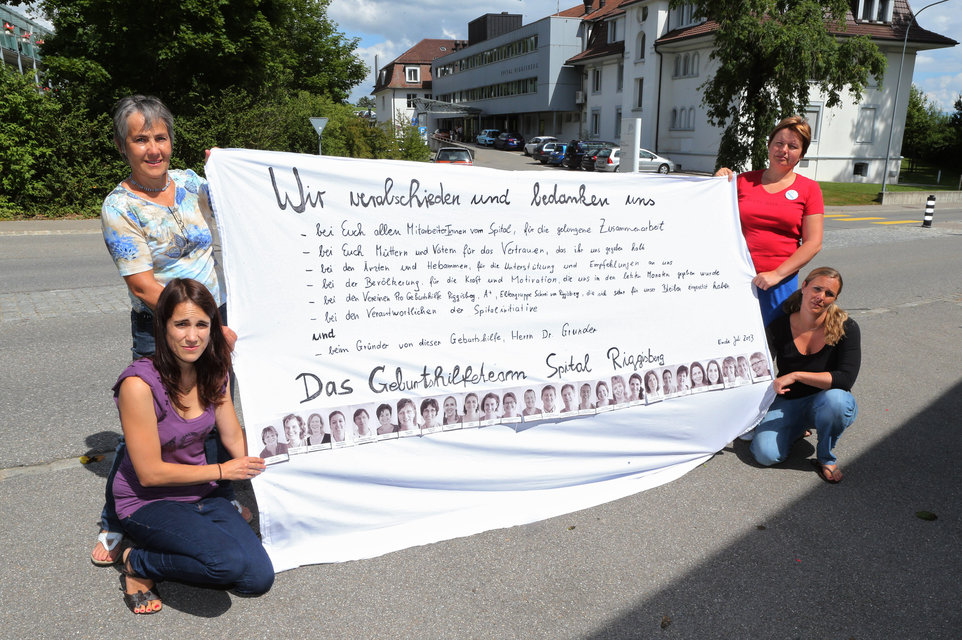 SPITAL RIGGISBERG
Wir verabschieden und bedanken uns
- bei Euch allen MitarbeiterInnen vom Spital, für die gelungene Zusammenarbeit
- bei Euch Müttern und Vätern für das Vertrauen, das ihr uns gegeben habt
- bei den Ärzten und Hebammen, für die Unterstützung und Empfehlungen an uns
- bei der Bevölkerung, für die Kraft und Motivation, die uns in den letzten Monaten gegeben wurde
- bei den Vereinen Pro Geburtshilfe Riggisberg, A+, Elterngruppe Schwei von Riggisberg, die sich sehr für unser Bleiben eingesetzt haben
- bei den Verantwortlichen der Spitalinitiative
und
- beim Gründer von dieser Geburtshilfe, Herrn Dr. Gründer
Ende Juli 2013
Das Geburtshilfeteam Spital Riggisberg